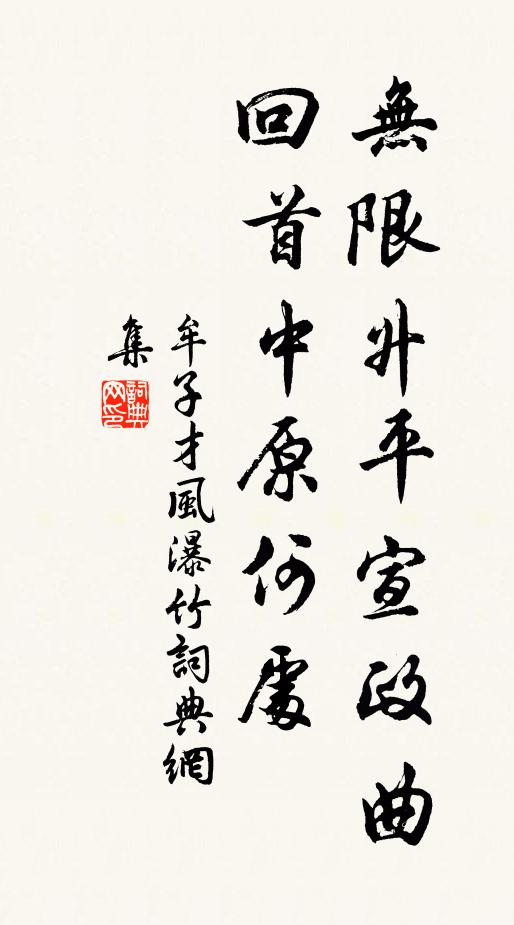 無限升平宣政曲
回首中原何處
牟子才風瀑竹詞典網
集
詞典
网印